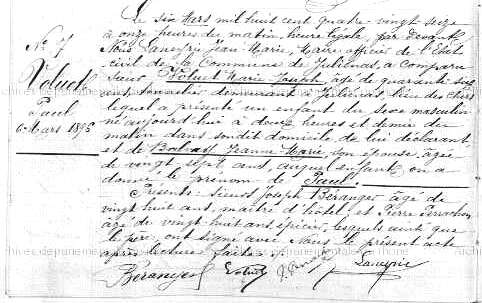 Le six Mars mil huit cent quatre-vingt seize
à onze heures du matin, heure légale, par devant
Nous Lanery Jean Marie, Maire officier de l'État
civil de la Commune de Juliénas, a comparu
sieur, Voluet Marie Joseph, âgé de quarante six
ans, domicilié à Juliénas lieu des
lequel a présenté un enfant du sexe masculin
né aujourd'hui à deux heures et demie du
matin dans son dit domicile de lui déclarant
et de Jeanne Marie, son épouse, âgée
de vingt sept ans, auquel enfant on a
donné le prénom de Paul.
Présents: sieurs Joseph Béranger âgé de
vingt huit ans, maître d'hôtel et Pierre
âgé de vingt huit ans épicier, lesquels ainsi que
le père, ont signé avec Nous le présent acte
après lecture faite.
Béranger
N° 7
Voluet
Paul
6 Mars 1896